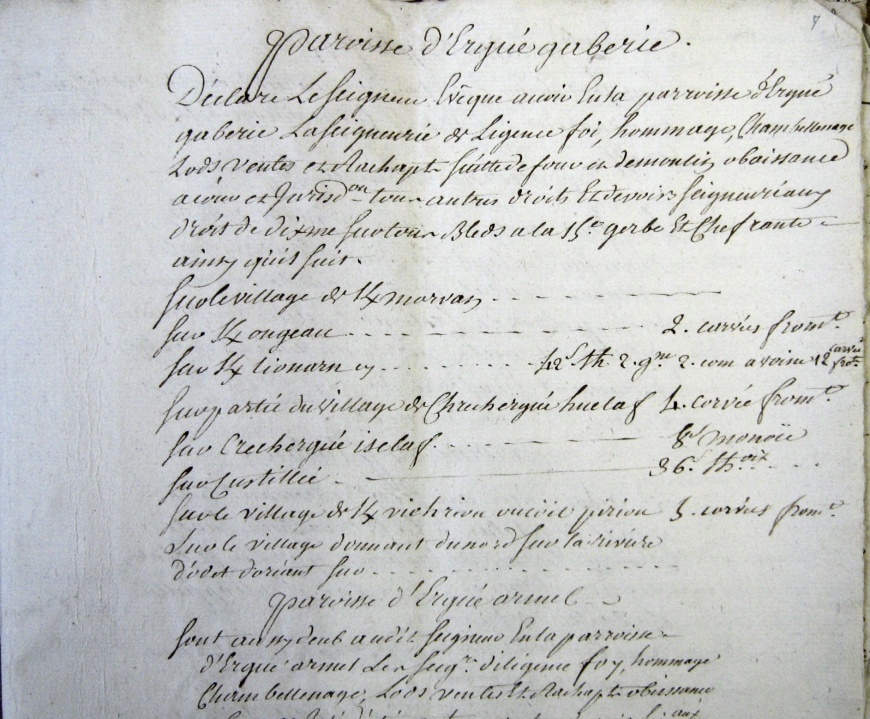 paroisse d'Ergué gaberic.
Déclare Le Seigneur Evêque avoir En la parroisse d'Ergué
gaberic La Seigneurie de Ligence foi, hommage, Chambellenage
Lods ventes et Rachapt Suitte de four et de moulin obaissance
a cour et Jurisd.on tous autres droits Et devoirs Seigneuriaux
droit de dixme Sur tous Bleds a la 15.e gerbe Et Chefrante
ainsy qu'il suit.
Sur le village de K morvan
Sur K ongeau 2. carvées from.t
Sur K lionarn 2. com avoine 12 carvée
Sur partie du village de Chrecherqué huelaf 4. corvée from.t
Sur Crecherqué iselaf 8.s monoie
Sur Custillic 36.s
Sur le village de K vichriou pirion 3. corvées from.t
Sur le village donnant du nord Sur la rivière
d'odet d'oriant Sur
paroisse d'Ergué armel
Sont aussy deub audit Seigneur En la parroisse
d'Ergué armel Les Seig.ie de ligence foy, hommage
Chambellenage, Lods ventes Et Rachapt obeissance